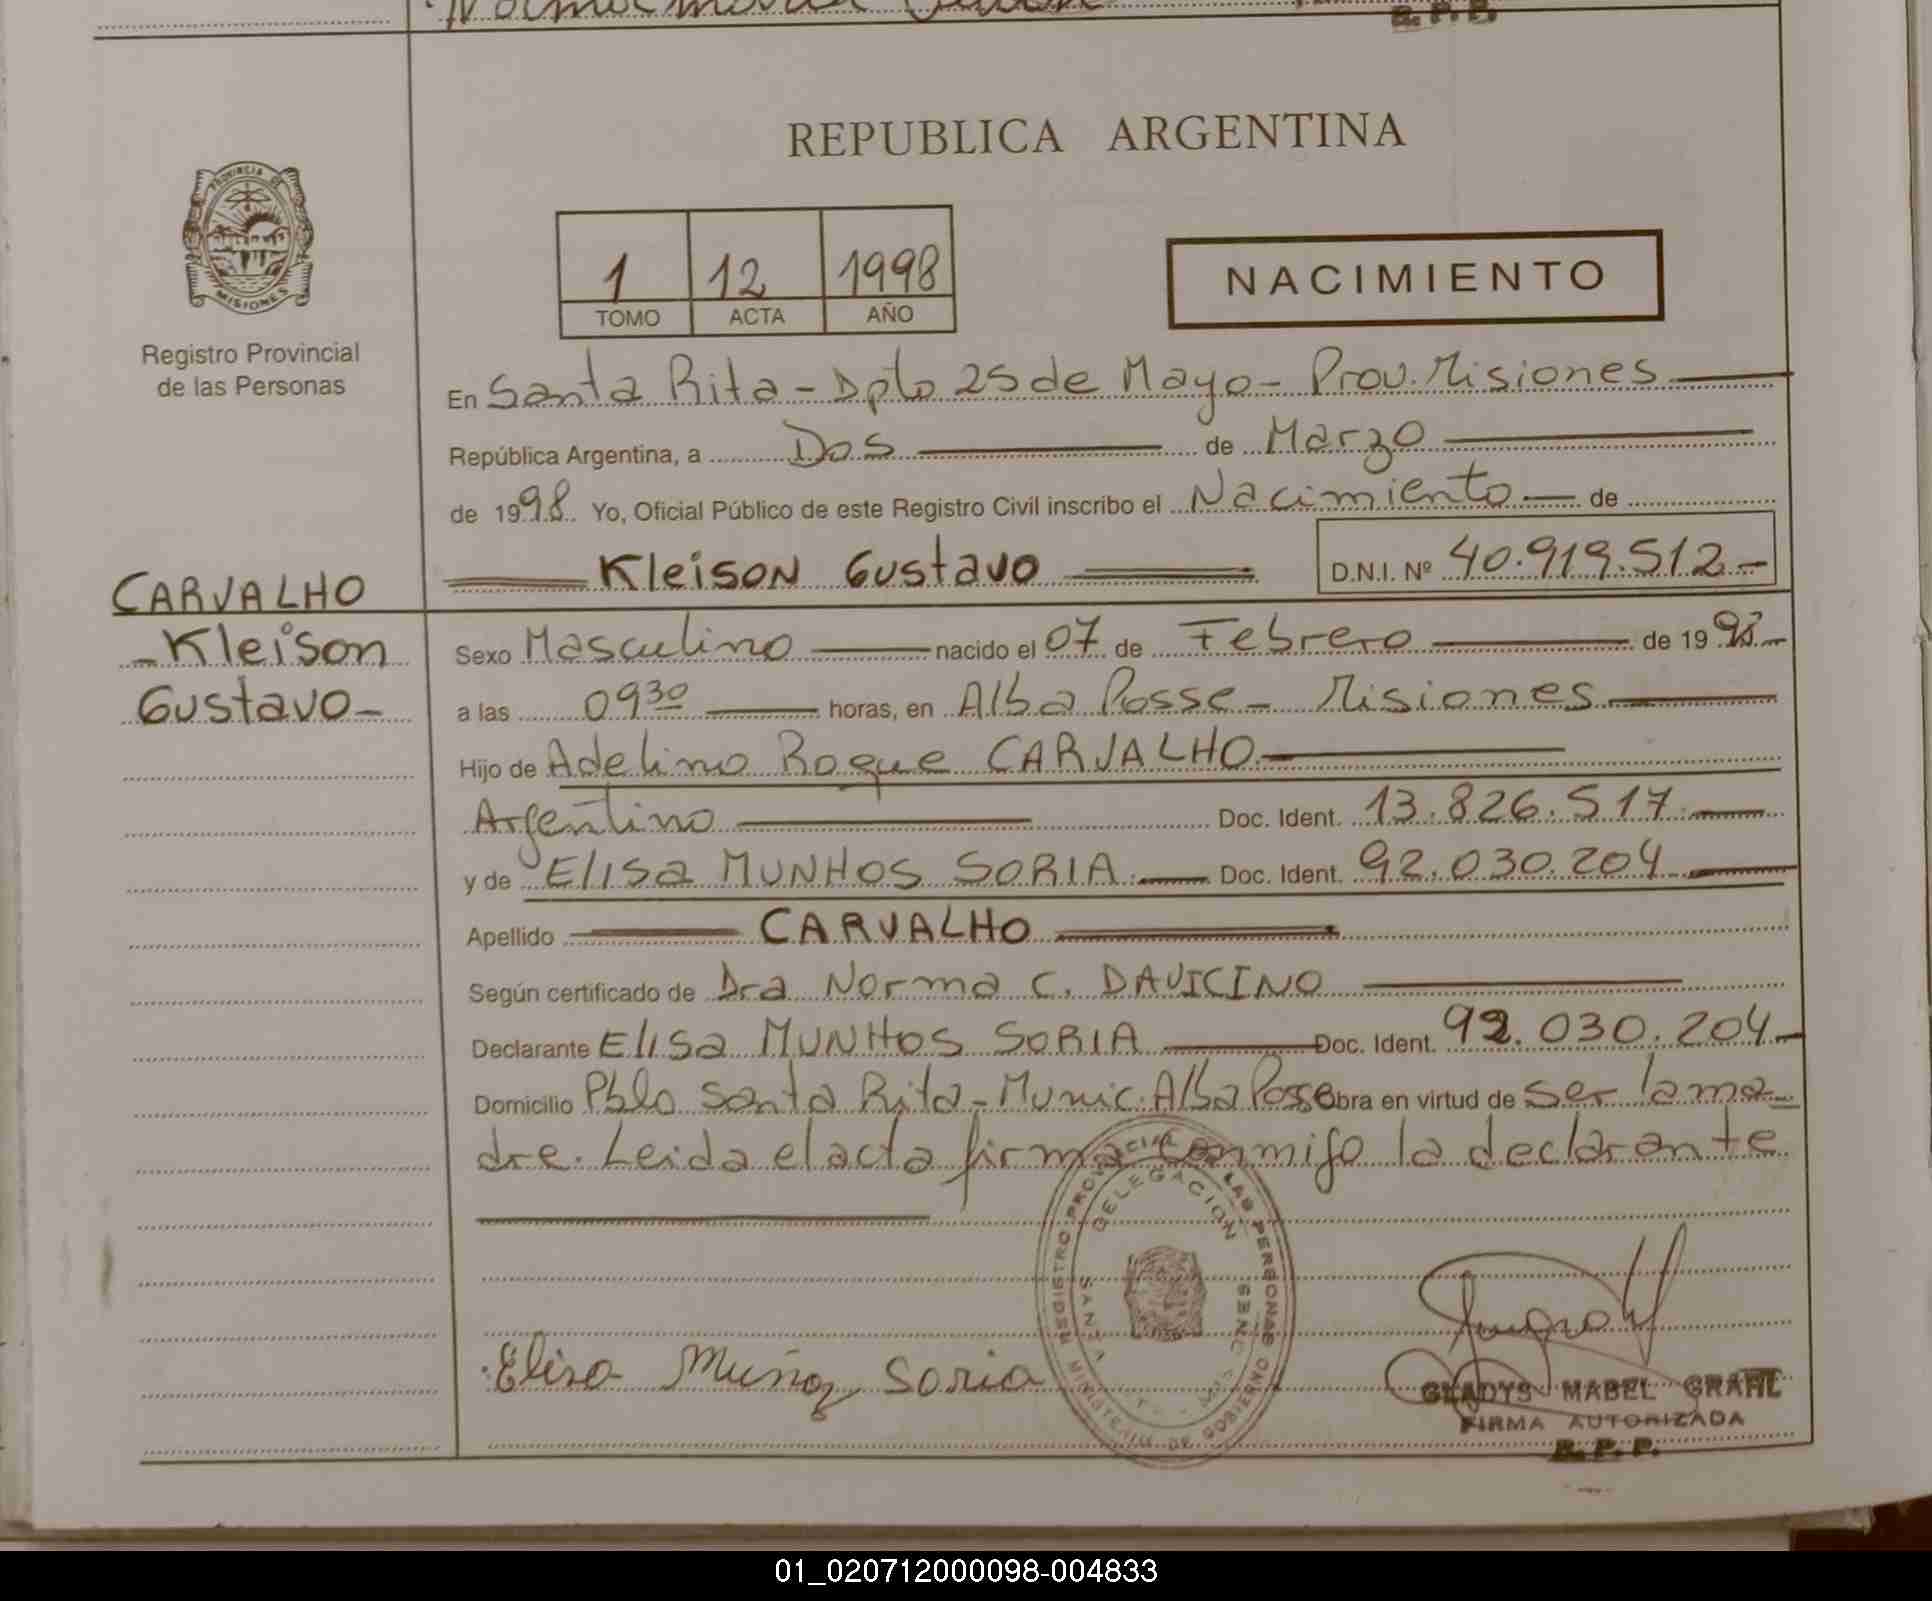 REPUBLICA ARGENTINA
PROVINCIA DE
MISIONES
Registro Provincial
de las Personas
1 12 1998
TOMO ACTA AÑO
NACIMIENTO
En Santa Rita - Dpto 25 de Mayo - Prov. Misiones
República Argentina, a Dos de Marzo
de 1998 Yo, Oficial Público de este Registro Civil inscribo el Nacimiento de
Kleison Gustavo D.N.I. Nº 40.919.512.-
CARVALHO
Kleison
Gustavo
Sexo Masculino nacido el 07 de Febrero de 1998.-
a las 09³⁰ horas, en Alba Posse - Misiones
Hijo de Adelino Roque CARVALHO
Argentino Doc. Ident. 13.826.517
y de Elisa MUNHOS SORIA Doc. Ident. 92.030.204
Apellido CARVALHO
Según certificado de Dra Norma C. DAVICINO
Declarante Elisa MUNHOS SORIA Doc. Ident. 92.030.204.-
Domicilio Pblo Santa Rita - Munic. Alba Posse Obra en virtud de ser la ma-
dre. Leida el acta firma conmigo la declarante
REGISTRO PROVINCIAL DE LAS PERSONAS
DELEGACION
MINISTERIO DE GOBIERNO
Elisa Muñoz Soria
GLADYS MABEL GRAHL
FIRMA AUTORIZADA
R. P. P.
01_020712000098-004833